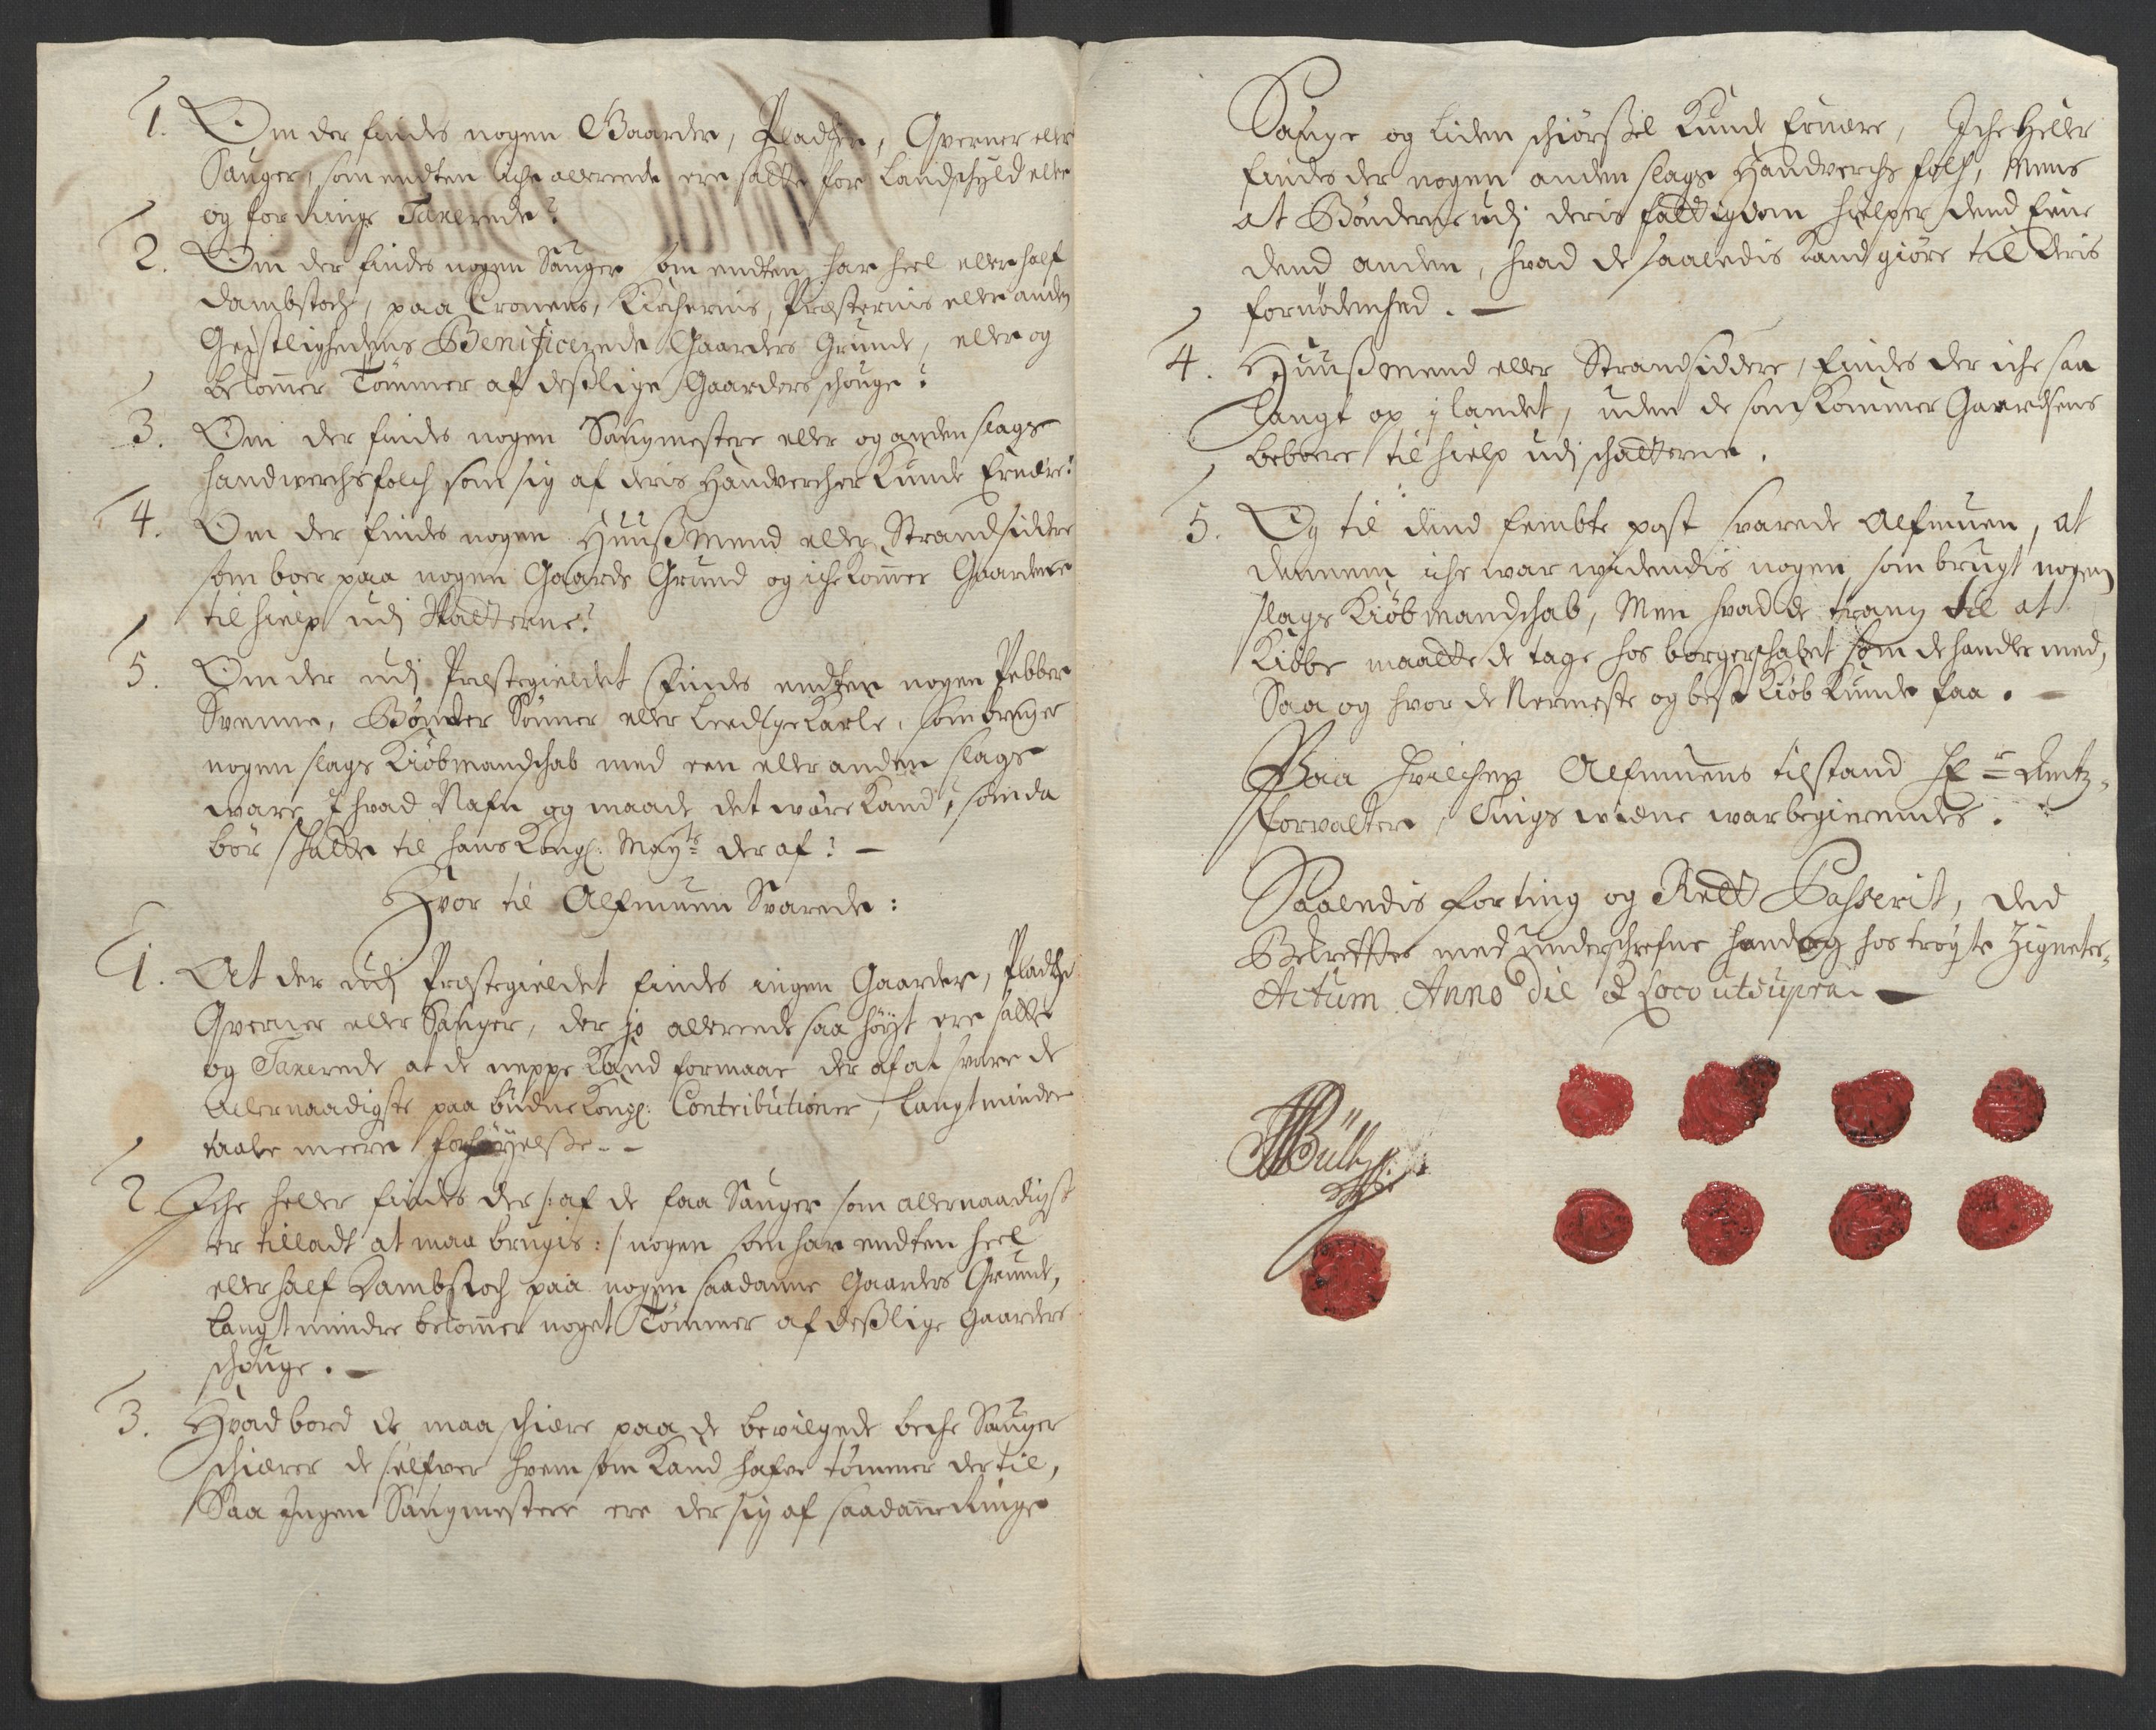 1. Om der findes nogen Gaarder, Pladtzer, Qverner eller
Sauger, som endten iche allerede ere satte for Landschyld eller
og for ringe Taxerede?
2. Om der findes nogen Sauger som endten har heel eller half
dambstoch, paa Cronens, Kirchernis, Præsternis eller anden
Geistlighedens Benificerede Gaarders Grunde, eller og
bekommer Tømmer af deslige Gaarders schouge?
3. Om der findes nogen Saugmestere eller og anden slags
handwerchsfolch som sig af deris Handvercher kunde Ernære?
4. Om der findes nogen Huusmend eller Strandsiddere
som boer paa nogen Gaards Grund og iche kommer Gaardene
til hielp udj Skatterne?
5. Om der udj Præstegieldet findes endten nogen Pebber
Svenne, Bønder Sønner eller Leedige Karle, som bruger
nogen slags Kiøbmandschab med een eller anden slags
ware I hvad Nafn og maade det være kand, som da
bør schatte til hans Kongl: Mayts der af? —
Hvor til Alfmuen Svarede:
1. At der udj Præstegieldet findes ingen Gaarder, Pladtzer
Qverner eller Sauger, der jo allerede saa høyt ere satte
og Taxerede at de neppe kand formaae der af at svare de
Allernaadigste paa budne Kongl: Contributioner, langt mindre
taale meere forhøyelsse. -
2. Iche heller findes der /: af de faa Sauger som allernaadigst
er tilladt at maa brugis :/ nogen som har endten heel
eller half Dambstoch paa nogen saadanne Gaarders Grunde,
langt mindre bekommer noget Tømmer af deslige Gaarders
schouge. —
3. Hvad bord de maa schiære paa de bevilgede beche Sauger
schiærer de selfver hvem som kand hafve tømmer der til,
Saa Ingen Saugmestere ere der sig af saadanne ringe
Sauge og liden schiørssel kunde Ernære, Iche heller
findes der nogen anden slags Handverchs folch, Mens
at Bønderne udj deris fattigdom hielper dend Eene
dend anden, hvad de saaledis kand giøre til deris
fornødenhed. —
4. Huusmend eller Strandsiddere, findes der iche saa
langt op j landet, uden de som kommer Gaardsens
beboere til hielp udj schatterne.
5. Og til dend fembte post svarede Alfmuen, at
dennem iche war widendis nogen som brugt nogen
slags Kiøbmandschab, Men hvad de trang til at
Kiøbe maatte de tage hos borgerschabet som de handler med,
Saa og hvor de Nermeste og best Kiøb kunde faa. —
Paa hvilchen Alfmuens tilstand Hr Amtz-
forvalter, tings widne war begierendes.
Saaledis for ting og Rett Passerit, Ded
Bekræfftes med underschrefne haand og hos trøgte Zigneter,
Actum Anno Die & Loco ut supra —